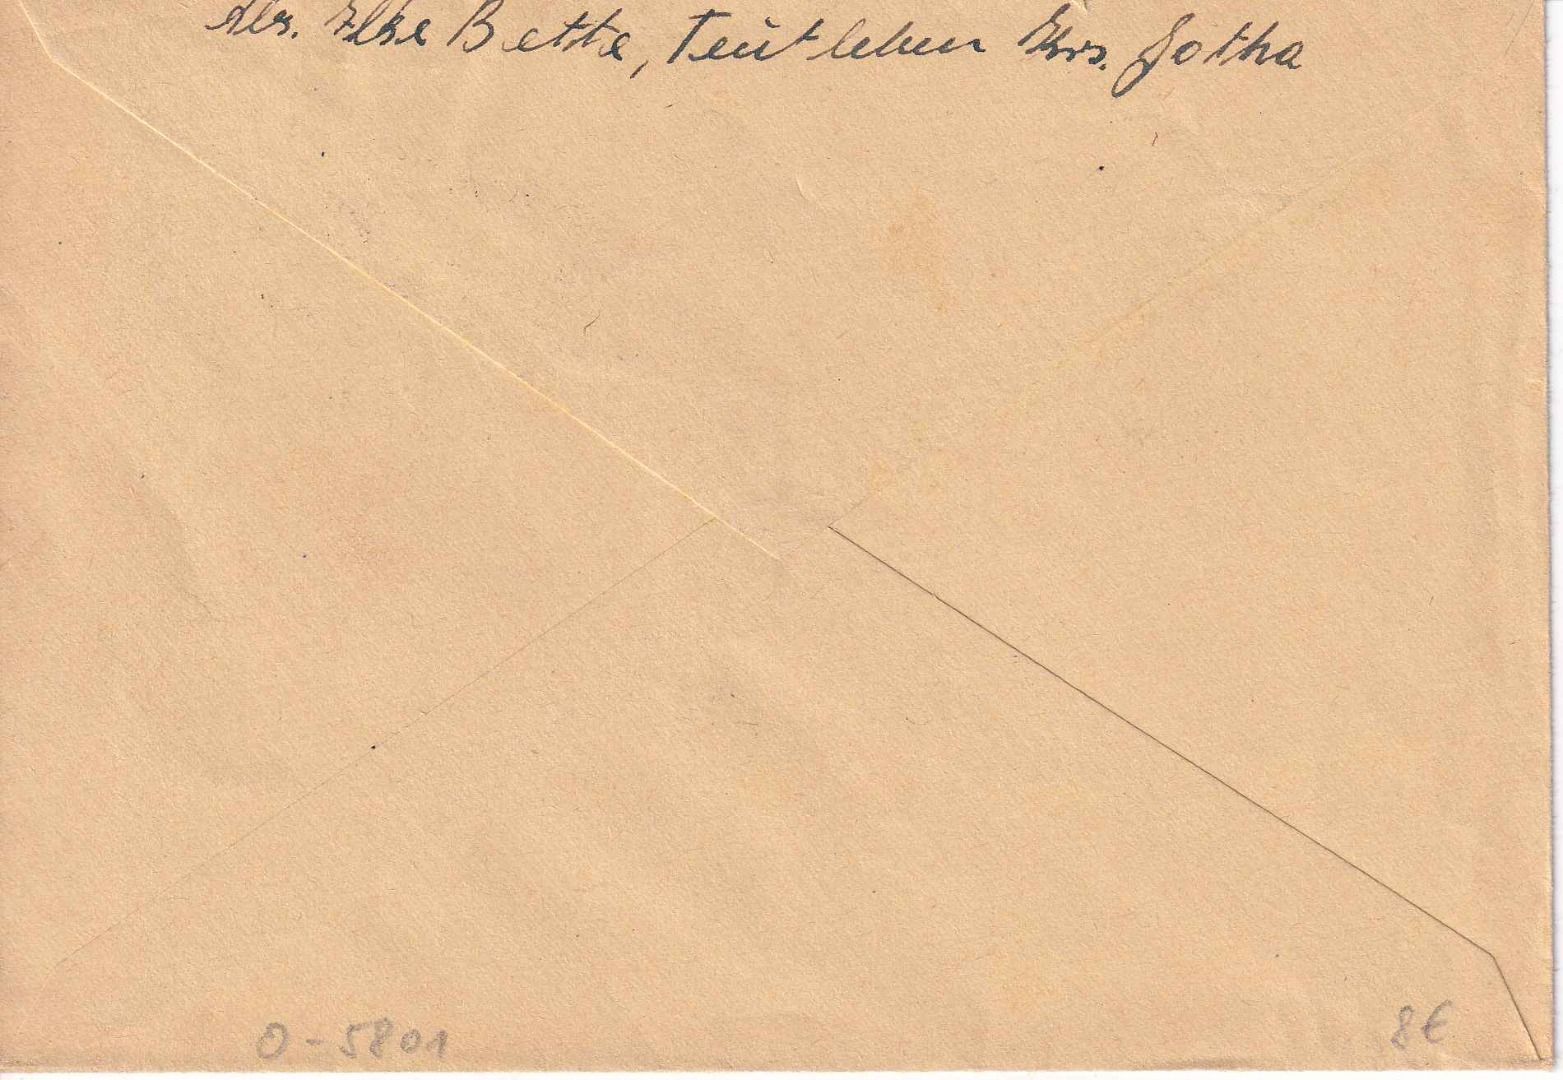 Abs. Elke Bette, Teutleben Krs. Gotha
O-5801
8€